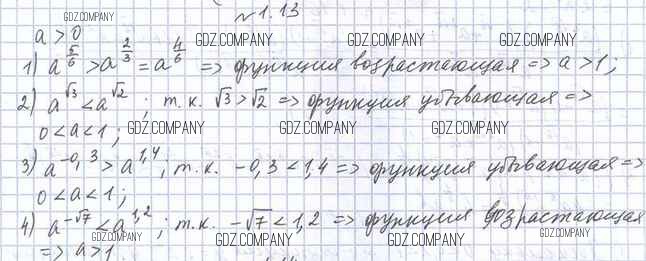 №1.13
GDZ.COMPANY
a > 0
GDZ.COMPANY GDZ.COMPANY GDZ.COMPANY
1) a^(5/6) > a^(2/3) = a^(4/6) => функция возрастающая => a > 1;
2) a^√3 < a^√2 ; т.к. √3 > √2 => функция убывающая =>
0 < a < 1;
GDZ.COMPANY GDZ.COMPANY GDZ.COMPANY
3) a^(-0,3) > a^(1,4); т.к. -0,3 < 1,4 => функция убывающая =>
0 < a < 1;
GDZ.COMPANY GDZ.COMPANY GDZ.COMPANY
4) a^(-√7) < a^(1,2); т.к. -√7 < 1,2 => функция возрастающая
=> a > 1
GDZ.COMPANY GDZ.COMPANY GDZ.COMPANY